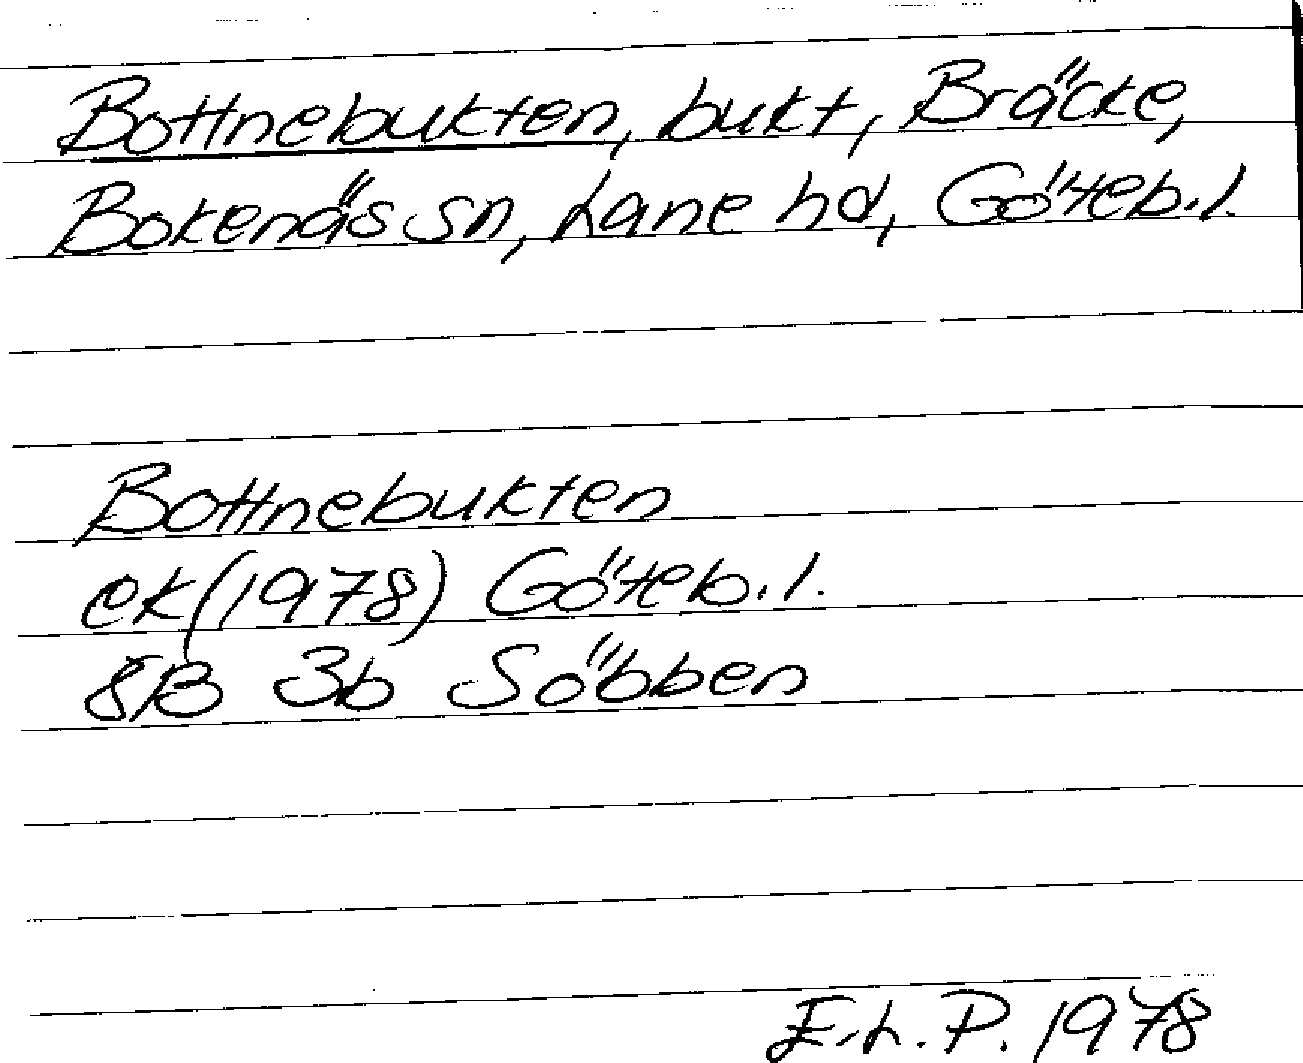 Bottnebukten, bukt, Bräcke,
Bokenäs sn, Lane hd, Göteb.l.
Bottnebukten
ek(1978) Göteb.l.
8B 3b Söbben
E.L.P. 1978